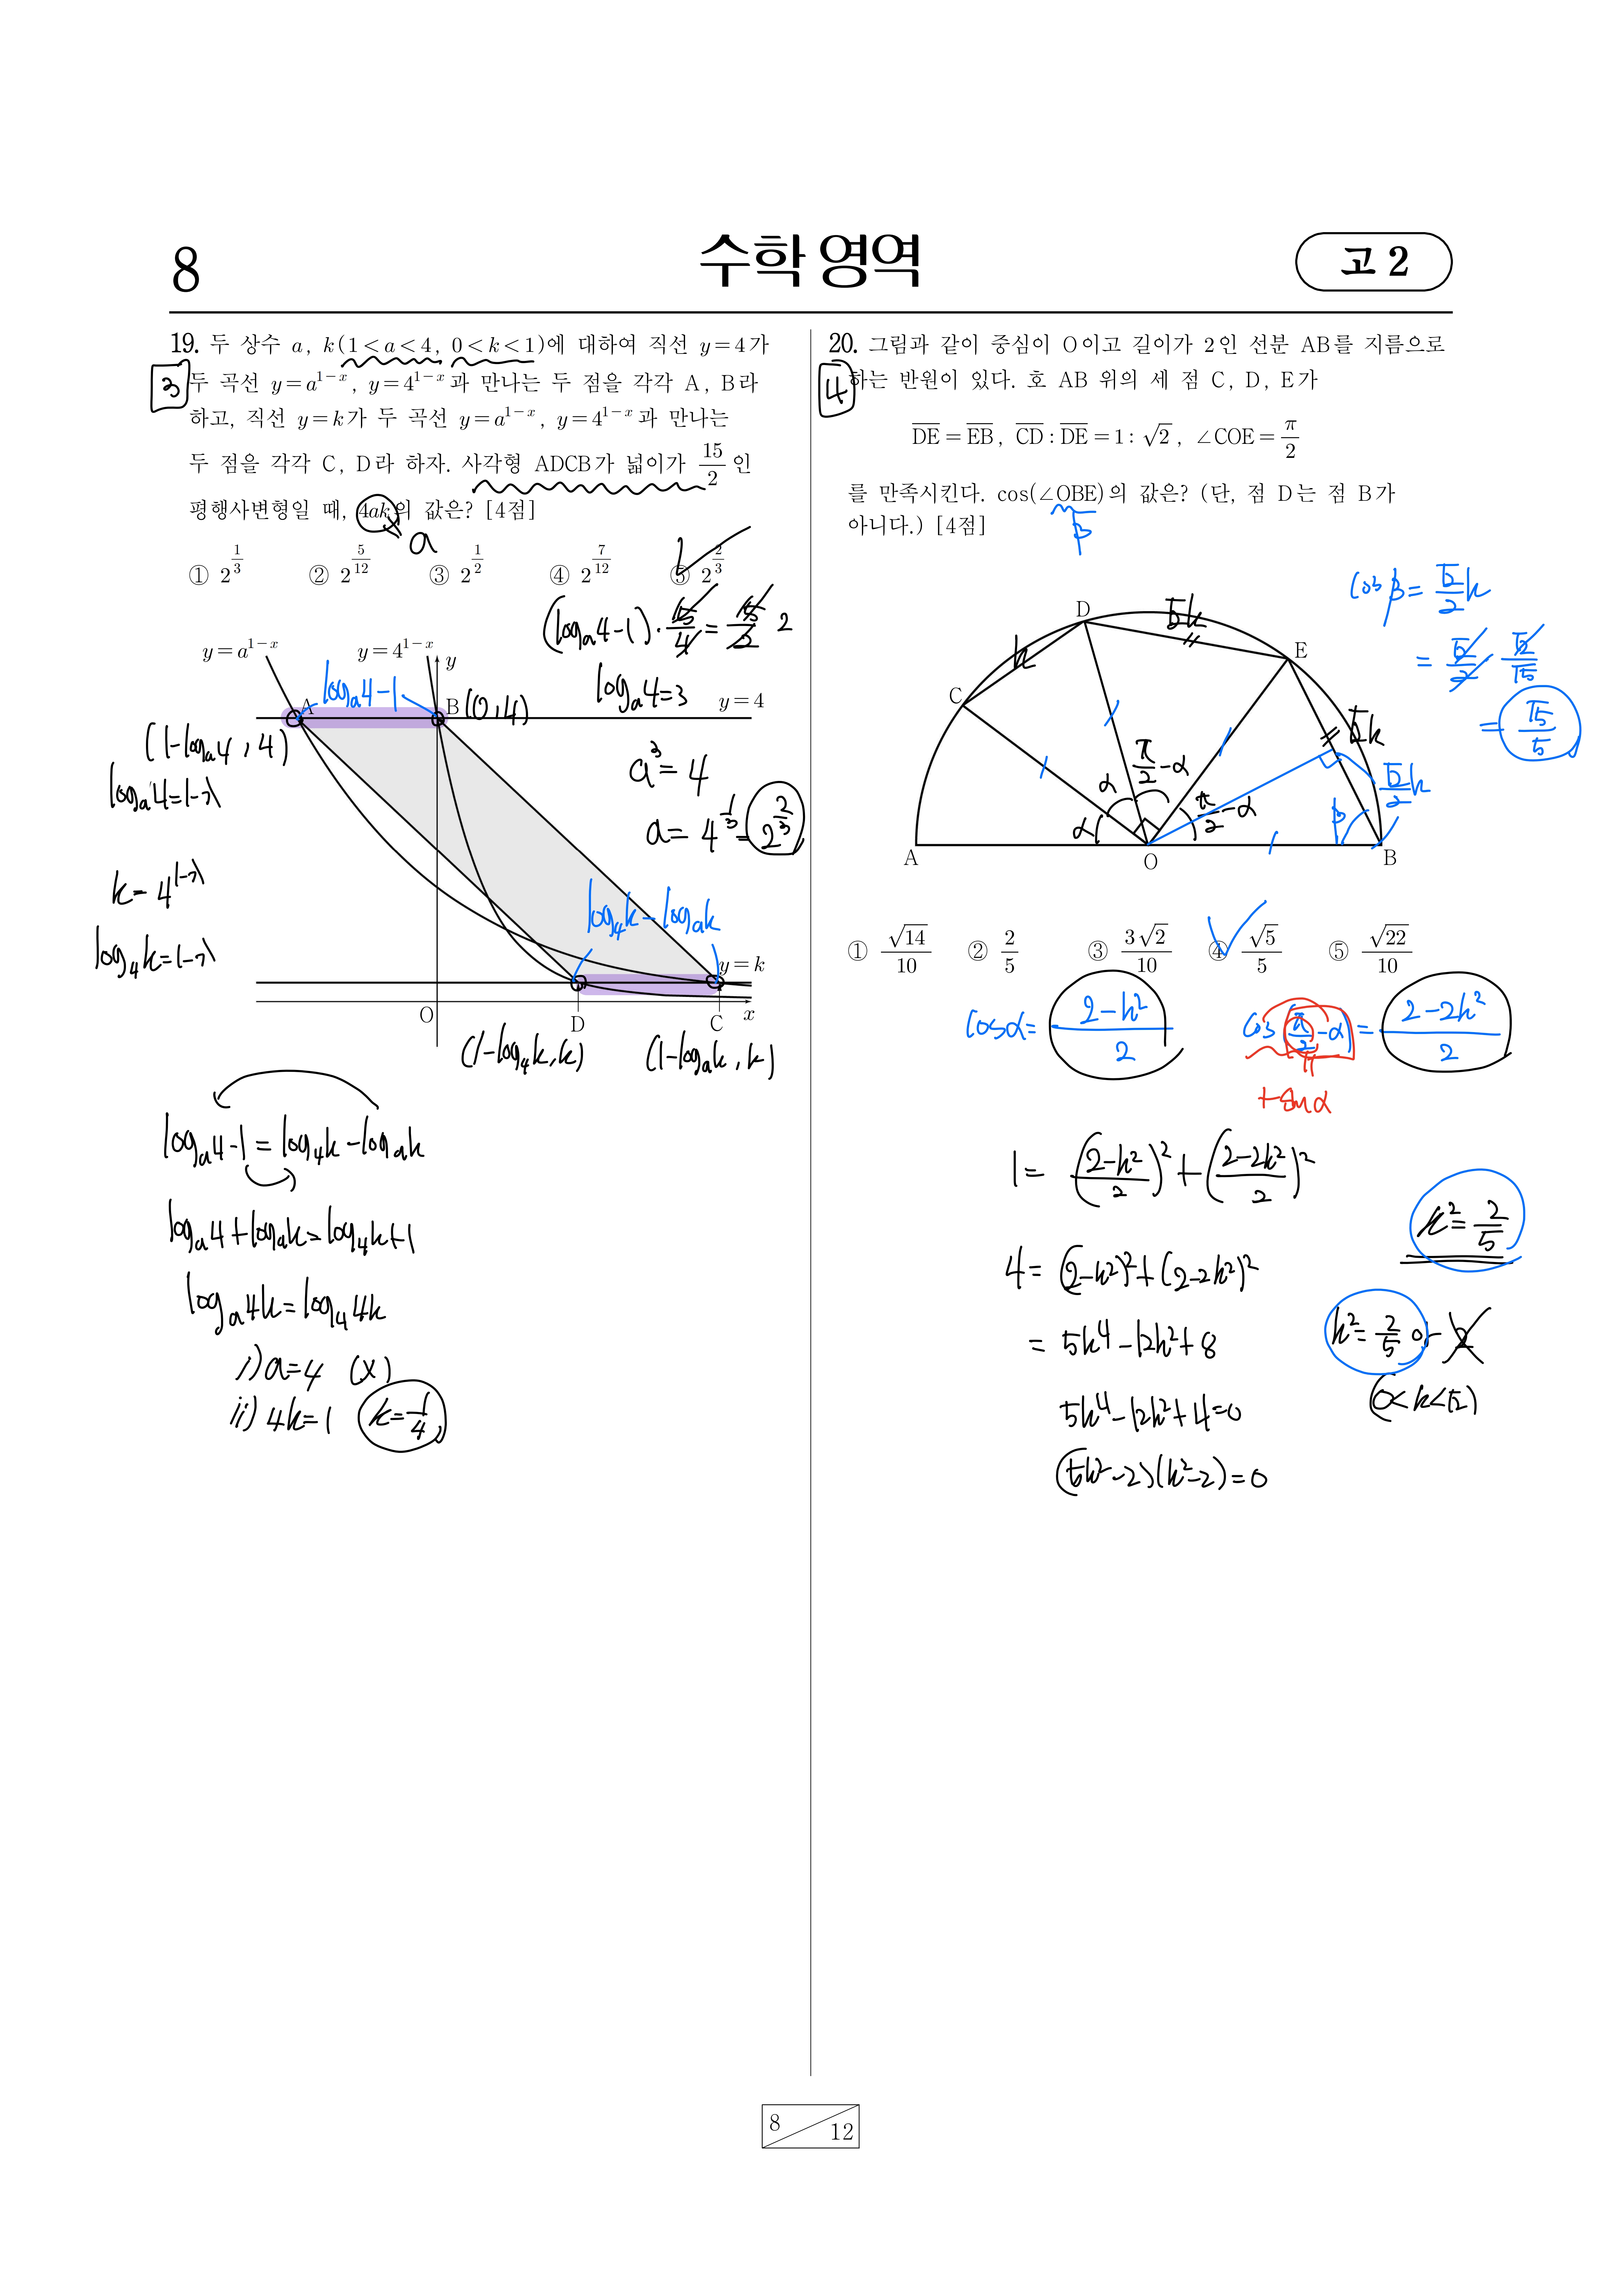 8
수학 영역
고 2
19. 두 상수 a, k(1<a<4, 0<k<1)에 대하여 직선 y=4가
3
두 곡선 y=a^{1-x}, y=4^{1-x}과 만나는 두 점을 각각 A, B라
하고, 직선 y=k가 두 곡선 y=a^{1-x}, y=4^{1-x}과 만나는
두 점을 각각 C, D라 하자. 사각형 ADCB가 넓이가 15/2 인
평행사변형일 때, 4ak의 값은? [4점]
a
① 2^{1/3} ② 2^{5/12} ③ 2^{1/2} ④ 2^{7/12} ⑤ 2^{2/3}
(log_a 4-1)·15/4=15/2 2
log_a 4=3
a^3=4
a=4^{1/3}=2^{2/3}
y=a^{1-x}
y=4^{1-x}
y
log_a 4-1
A
B
(0,4)
y=4
(1-log_a 4, 4)
log_a 4=1-x
k=4^{1-x}
log_4 k=1-x
log_4 k-log_a k
y=k
O
D
C
x
(1-log_4 k, k)
(1-log_a k, k)
log_a 4-1=log_4 k-log_a k
log_a 4+log_a k=log_4 k+1
log_a 4k=log_4 4k
i) a=4 (x)
ii) 4k=1 k=1/4
20. 그림과 같이 중심이 O이고 길이가 2인 선분 AB를 지름으로
4
하는 반원이 있다. 호 AB 위의 세 점 C, D, E가
DE=EB, CD:DE=1:√2, ∠COE=π/2
를 만족시킨다. cos(∠OBE)의 값은? (단, 점 D는 점 B가
β
아니다.) [4점]
cosβ=√2/2 k
=√2/2·√2/√5
=√5/5
D
√2k
k
E
C
√2k
π/2-α
α
π/2-α
α
√2/2 k
β
A
O
B
① √14/10 ② 2/5 ③ 3√2/10 ④ √5/5 ⑤ √22/10
cosα=(2-k²)/2
cos(π/2-α)=(2-2k²)/2
+sinα
1=((2-k²)/2)²+((2-2k²)/2)²
k²=2/5
4=(2-k²)²+(2-2k²)²
=5k⁴-12k²+8
k²=2/5 or 2
(0<k<√2)
5k⁴-12k²+4=0
(5k²-2)(k²-2)=0
8
12